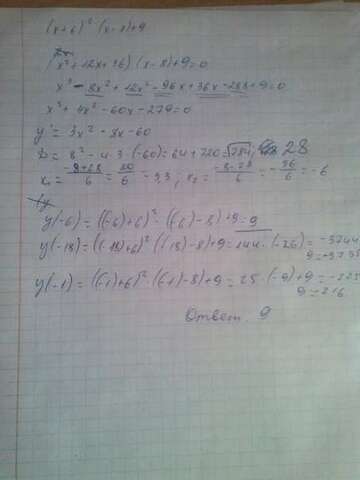 (x+6)²·(x-8)+9
(x²+12x+36)·(x-8)+9=0
x³-8x²+12x²-96x+36x-288+9=0
x³+4x²-60x-279=0
y'=3x²-8x-60
D=8²-4·3·(-60)=64+720=√784; 28
x₁=(-8+28)/6=20/6=-3,3; x₂=(-8-28)/6=-36/6=-6
y(-6)=((-6)+6)²·((-6)-8)+9=9
y(-18)=((-18)+6)²·((-18)-8)+9=144·(-26)=-3744
y(-1)=((-1)+6)²·((-1)-8)+9=25·(-9)+9=-225
9=216
Ответ. 9